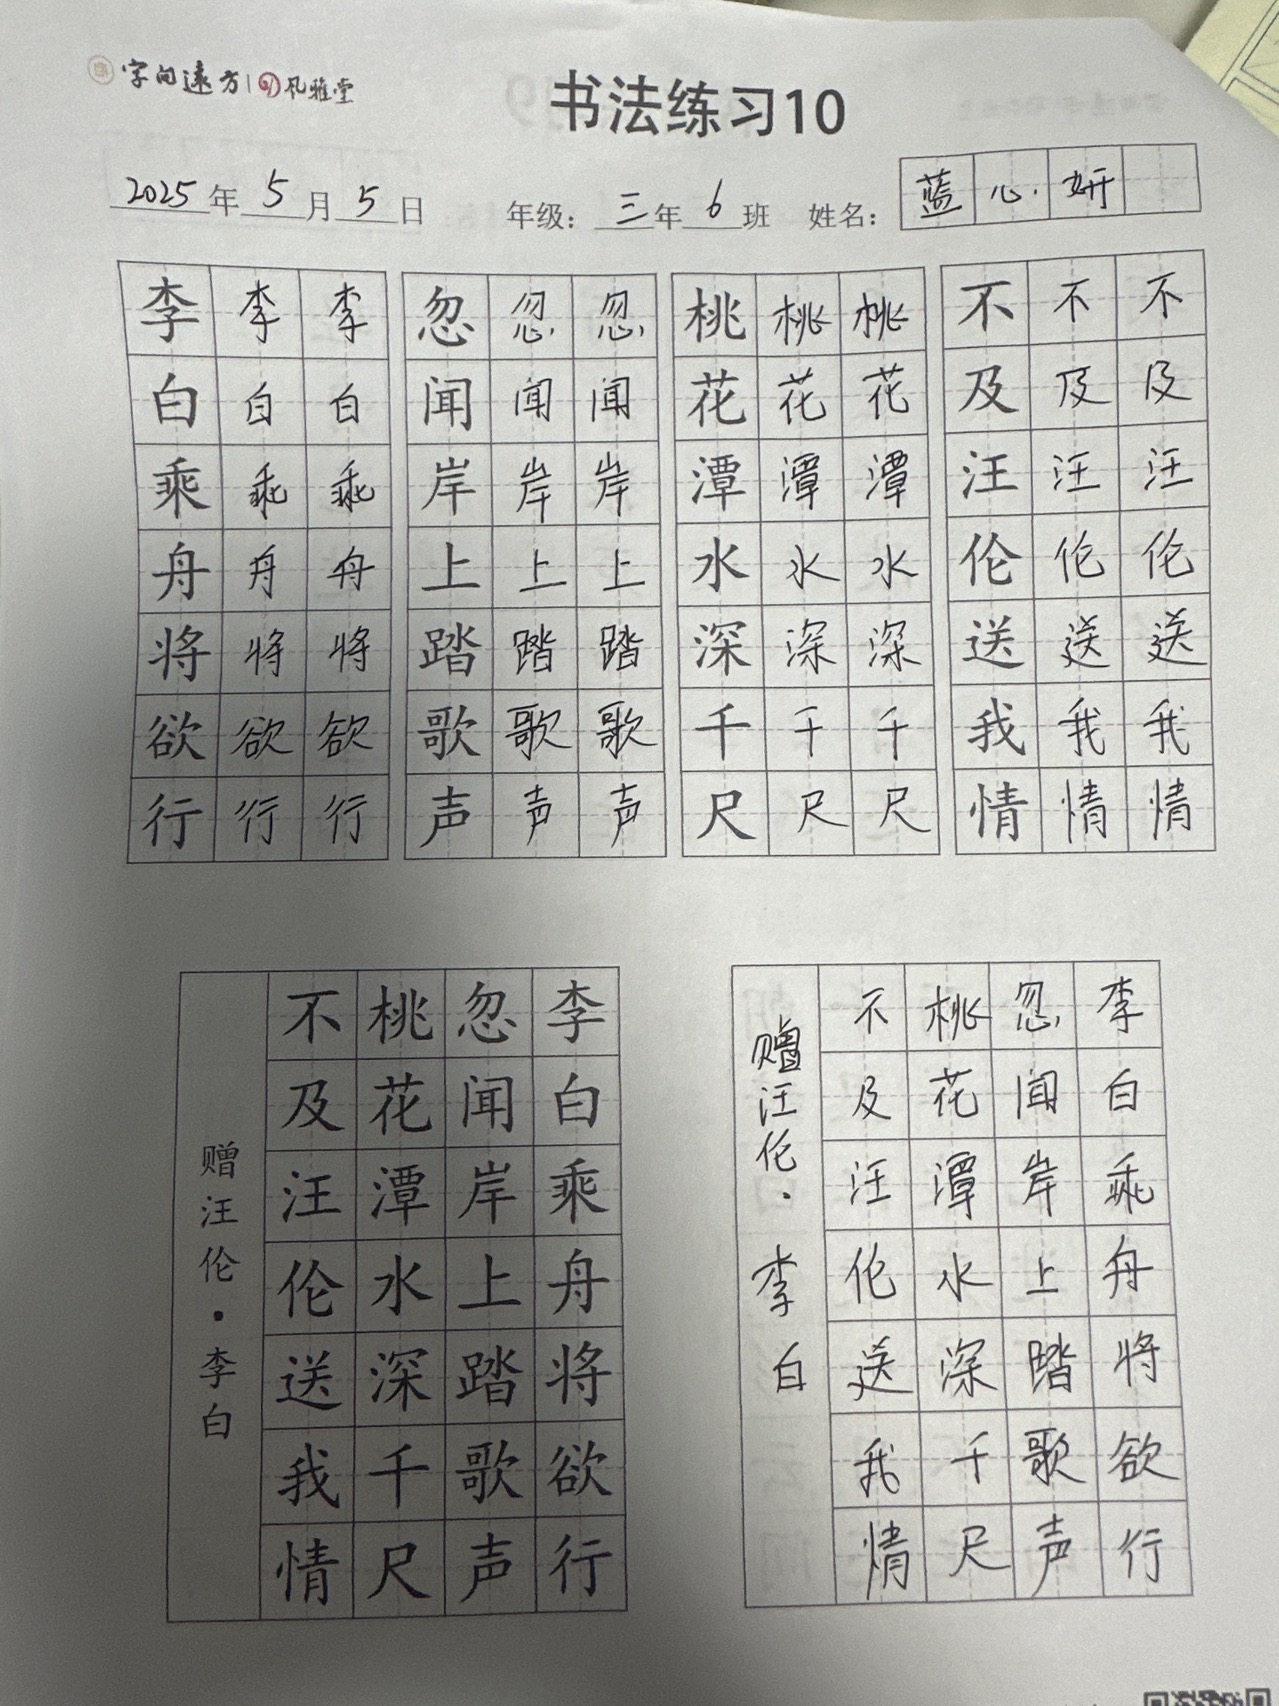 字问远方 孔雅堂
书法练习10
2025年5月5日 年级：三年6班 姓名：蓝心妍
李李李 忽忽忽 桃桃桃 不不不
白白白 闻闻闻 花花花 及及及
乘乘乘 岸岸岸 潭潭潭 汪汪汪
舟舟舟 上上上 水水水 伦伦伦
将将将 踏踏踏 深深深 送送送
欲欲欲 歌歌歌 千千千 我我我
行行行 声声声 尺尺尺 情情情
李白乘舟将欲行
忽闻岸上踏歌声
桃花潭水深千尺
不及汪伦送我情
赠汪伦·李白
李白乘舟将欲行
忽闻岸上踏歌声
桃花潭水深千尺
不及汪伦送我情
赠汪伦·李白